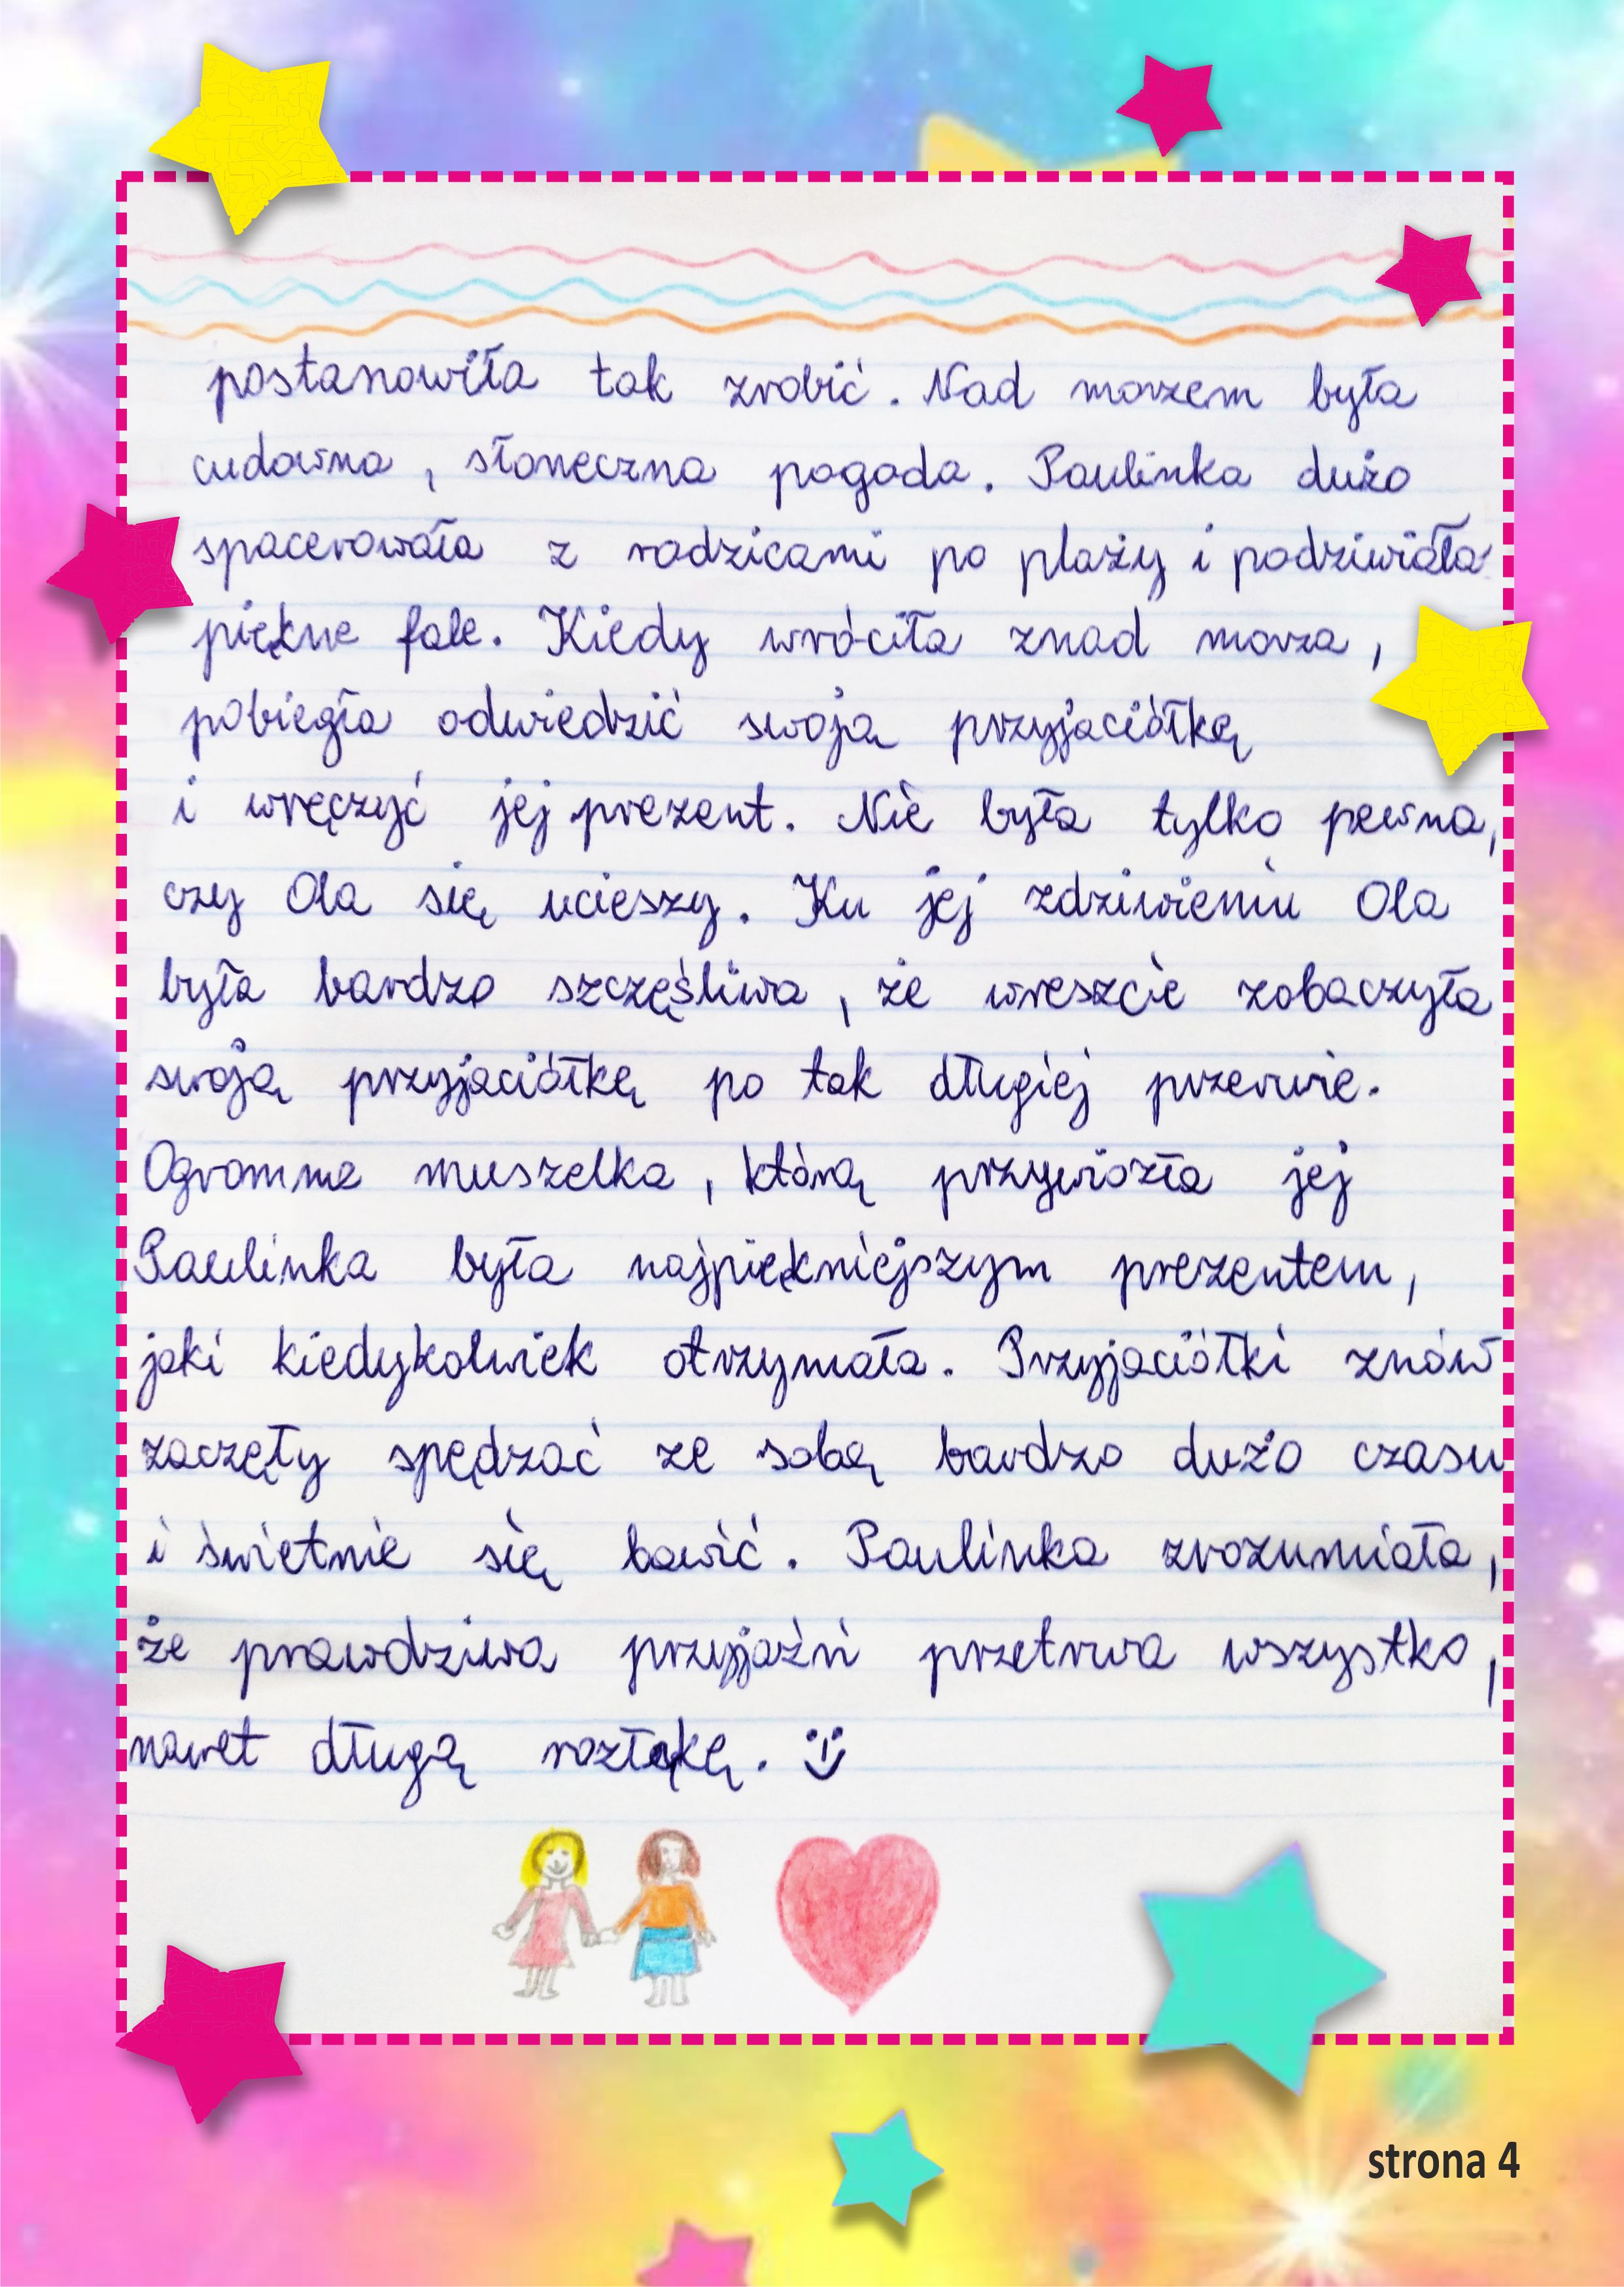 postanowiła tak zrobić. Nad morzem była
cudowna, słoneczna pogoda. Paulinka dużo
spacerowała z rodzicami po plaży i podziwiała
piękne fale. Kiedy wróciła znad morza,
pobiegła odwiedzić swoją przyjaciółkę
i wręczyć jej prezent. Nie była tylko pewna,
czy Ola się ucieszy. Ku jej zdziwieniu Ola
była bardzo szczęśliwa, że wreszcie zobaczyła
swoją przyjaciółkę po tak długiej przerwie.
Ogromna muszelka, którą przywiozła jej
Paulinka była najpiękniejszym prezentem,
jaki kiedykolwiek otrzymała. Przyjaciółki znów
zaczęły spędzać ze sobą bardzo dużo czasu
i świetnie się bawić. Paulinka zrozumiała,
że prawdziwa przyjaźń przetrwa wszystko,
nawet długą rozłąkę. :)
strona 4